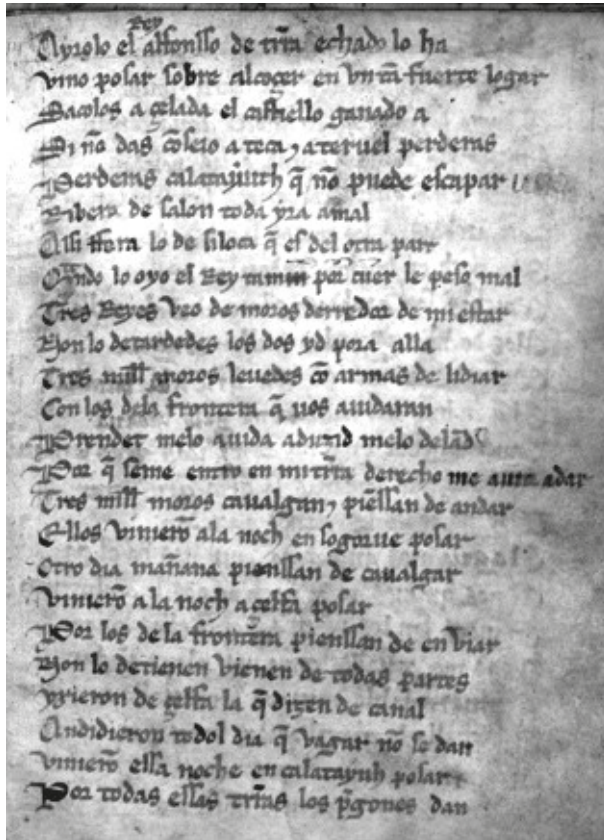 Rey
Ayrolo el alfonsso de trra echado lo ha
vino posar sobre alcoçer en vn tā fuerte logar
Sacolos a çelada el castiello ganado a
Si nō das cōseio a teca ⁊ a teruel perderas
Perderas calatayuth q̄ nō puede escapar
Ribera de salon toda yra amal
Assi ffera lo de siloca q̄ es del otra part
Qn̄do lo oyo el Rey tamin por cuer le peso mal
Tres Reyes veo de moros derredor de mi estar
Non lo detardedes los dos yd pora alla
Tres mill moros leuedes cō armas de lidiar
Con los dela frontera q̄ uos aiudaran
Prendet melo auida aduzid melo delād
Por q̄ seme entro en mi trra derecho me aura adar
Tres mill moros caualgan ⁊ piēssan de andar
Ellos vinierō ala noch en sogorue posar
Otro dia mañana pienssan de caualgar
vinierō ala noch a çelfa posar
Por los de la frontera pienssan de en viar
Non lo detienen vienen de todas partes
yxieron de çelfa la q̄ dizen de canal
Andidieron todol dia q̄ vagar nō se dan
vinierō essa noche en calatayuh posar
Por todas essas trras los pgones dan